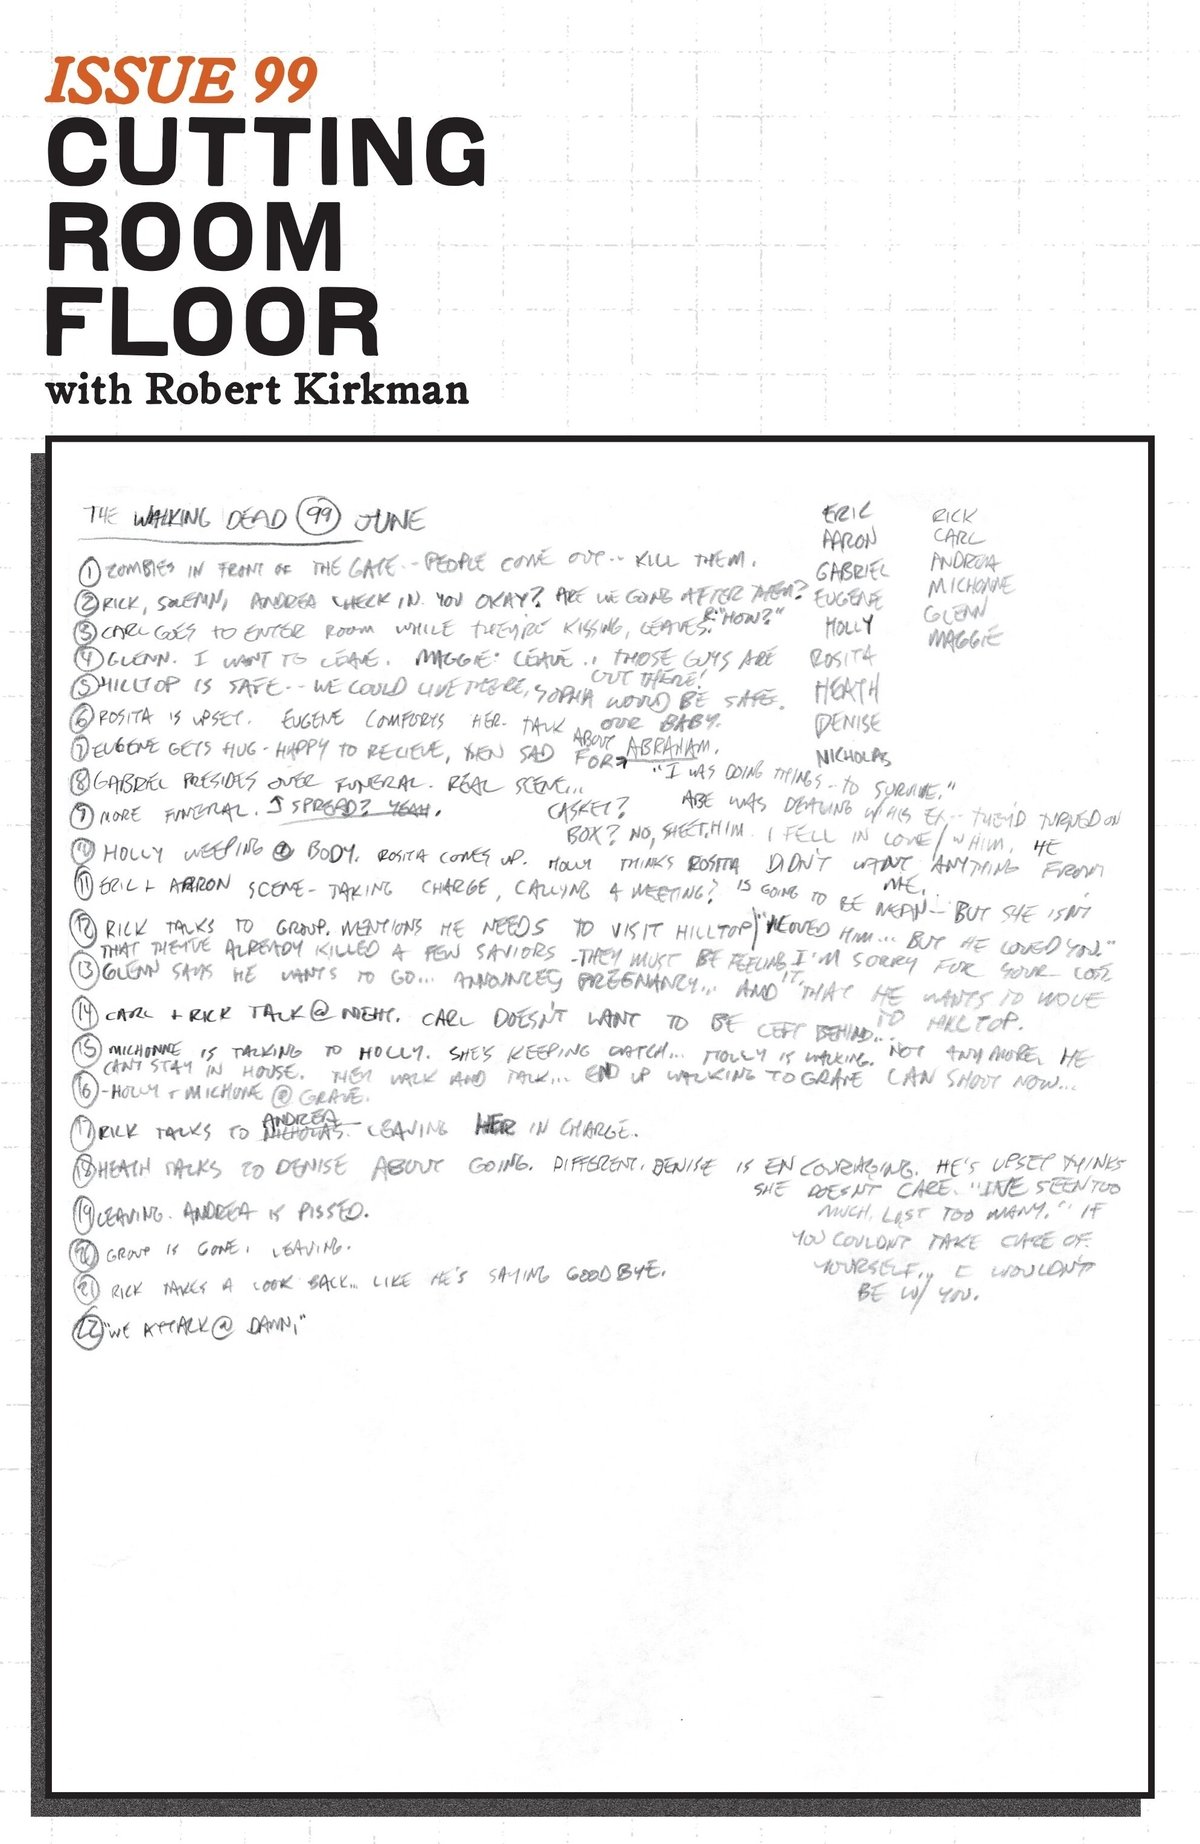 ISSUE 99
CUTTING
ROOM
FLOOR
with Robert Kirkman
THE WALKING DEAD 99 JUNE
ERIC
AARON
GABRIEL
EUGENE
HOLLY
ROSITA
HEATH
DENISE
NICHOLAS
RICK
CARL
ANDREA
MICHONNE
GLENN
MAGGIE
1 ZOMBIES IN FRONT OF THE GATE-- PEOPLE COME OUT-- KILL THEM.
2 RICK, SOLEMN, ANDREA CHECK IN. YOU OKAY? ARE WE GOING AFTER THEM?
R: "HOW?"
3 CARL GOES TO ENTER ROOM WHILE THEY'RE KISSING, LEAVES.
4 GLENN. I WANT TO LEAVE. MAGGIE: LEAVE.. THOSE GUYS ARE
OUT THERE!
5 HILLTOP IS SAFE-- WE COULD LIVE THERE, SOPHIA WOULD BE SAFE.
OUR BABY.
6 ROSITA IS UPSET. EUGENE COMFORTS HER. TALK
ABOUT ABRAHAM.
7 EUGENE GETS HUG - HAPPY TO RECIEVE, THEN SAD FOR
"I WAS DOING THINGS-- TO SURVIVE."
8 GABRIEL PRESIDES OVER FUNERAL. REAL SCENE...
9 MORE FUNERAL. SPREAD? YEAH.
CASKET?
BOX? NO, SHEET.
ABE WAS DEALING W/ HIS EX-- THEY'D TURNED ON
HIM. I FELL IN LOVE W/ HIM. HE
10 HOLLY WEEPING @ BODY. ROSITA COMES UP. HOLLY THINKS ROSITA DIDN'T WANT ANYTHING FROM
ME.
11 ERIC + AARON SCENE- TAKING CHARGE, CALLING A MEETING? IS GOING TO BE MEAN-- BUT SHE ISN'T
12 RICK TALKS TO GROUP. MENTIONS HE NEEDS TO VISIT HILLTOP "I LOVED HIM... BUT HE LOVED YOU."
THAT THEY'VE ALREADY KILLED A FEW SAVIORS -THEY MUST BE FEELING IT. I'M SORRY FOR YOUR LOSS
13 GLENN SAYS HE WANTS TO GO... ANNOUNCES PREGNANCY... AND THAT HE WANTS TO MOVE
TO HILLTOP.
14 CARL + RICK TALK @ NIGHT. CARL DOESN'T WANT TO BE LEFT BEHIND...
NOT ANYMORE. HE
CAN SHOOT NOW...
15 MICHONNE IS TALKING TO HOLLY. SHE'S KEEPING WATCH... HOLLY IS WALKING.
CAN'T STAY IN HOUSE. THEY WALK AND TALK... END UP WALKING TO GRAVE
16 -HOLLY + MICHONE @ GRAVE.
17 RICK TALKS TO NICHOLAS. ANDREA LEAVING HER IN CHARGE.
18 HEATH TALKS TO DENISE ABOUT GOING. DIFFERENT. DENISE IS ENCOURAGING. HE'S UPSET THINKS
SHE DOESN'T CARE. "I'VE SEEN TOO
MUCH, LOST TOO MANY." IF
YOU COULDN'T TAKE CARE OF
YOURSELF... I WOULDN'T
BE W/ YOU.
19 LEAVING. ANDREA IS PISSED.
20 GROUP IS GONE, LEAVING.
21 RICK TAKES A LOOK BACK... LIKE HE'S SAYING GOODBYE.
22 "WE ATTACK @ DAWN,"